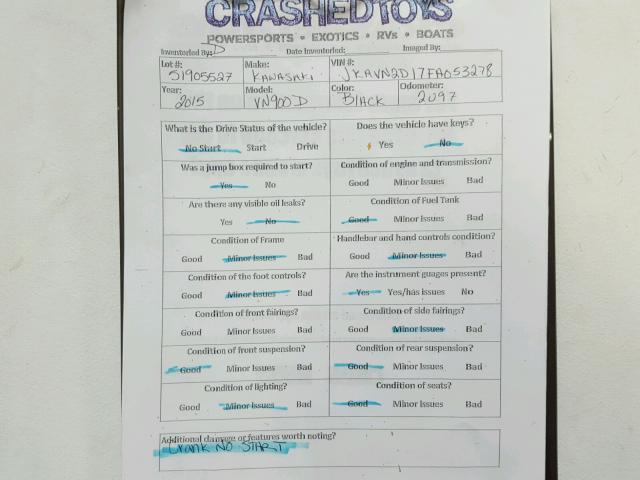 CRASHEDTOYS
POWERSPORTS • EXOTICS • RVs • BOATS
Inventoried By: D Date Inventoried: Imaged By:
Lot #: Make: VIN #:
51905527 KAWASAKI JKAVN2D17FA053278
Year: Model: Color: Odometer:
2015 VN900D BLACK 2097
What is the Drive Status of the vehicle? Does the vehicle have keys?
No Start Start Drive Yes No
Was a jump box required to start? Condition of engine and transmission?
Yes No Good Minor Issues Bad
Are there any visible oil leaks? Condition of Fuel Tank
Yes No Good Minor Issues Bad
Condition of Frame Handlebar and hand controls condition?
Good Minor Issues Bad Good Minor Issues Bad
Condition of the foot controls? Are the instrument guages present?
Good Minor Issues Bad Yes Yes/has issues No
Condition of front fairings? Condition of side fairings?
Good Minor Issues Bad Good Minor Issues Bad
Condition of front suspension? Condition of rear suspension?
Good Minor Issues Bad Good Minor Issues Bad
Condition of lighting? Condition of seats?
Good Minor Issues Bad Good Minor Issues Bad
Additional damage or features worth noting?
Crank NO START